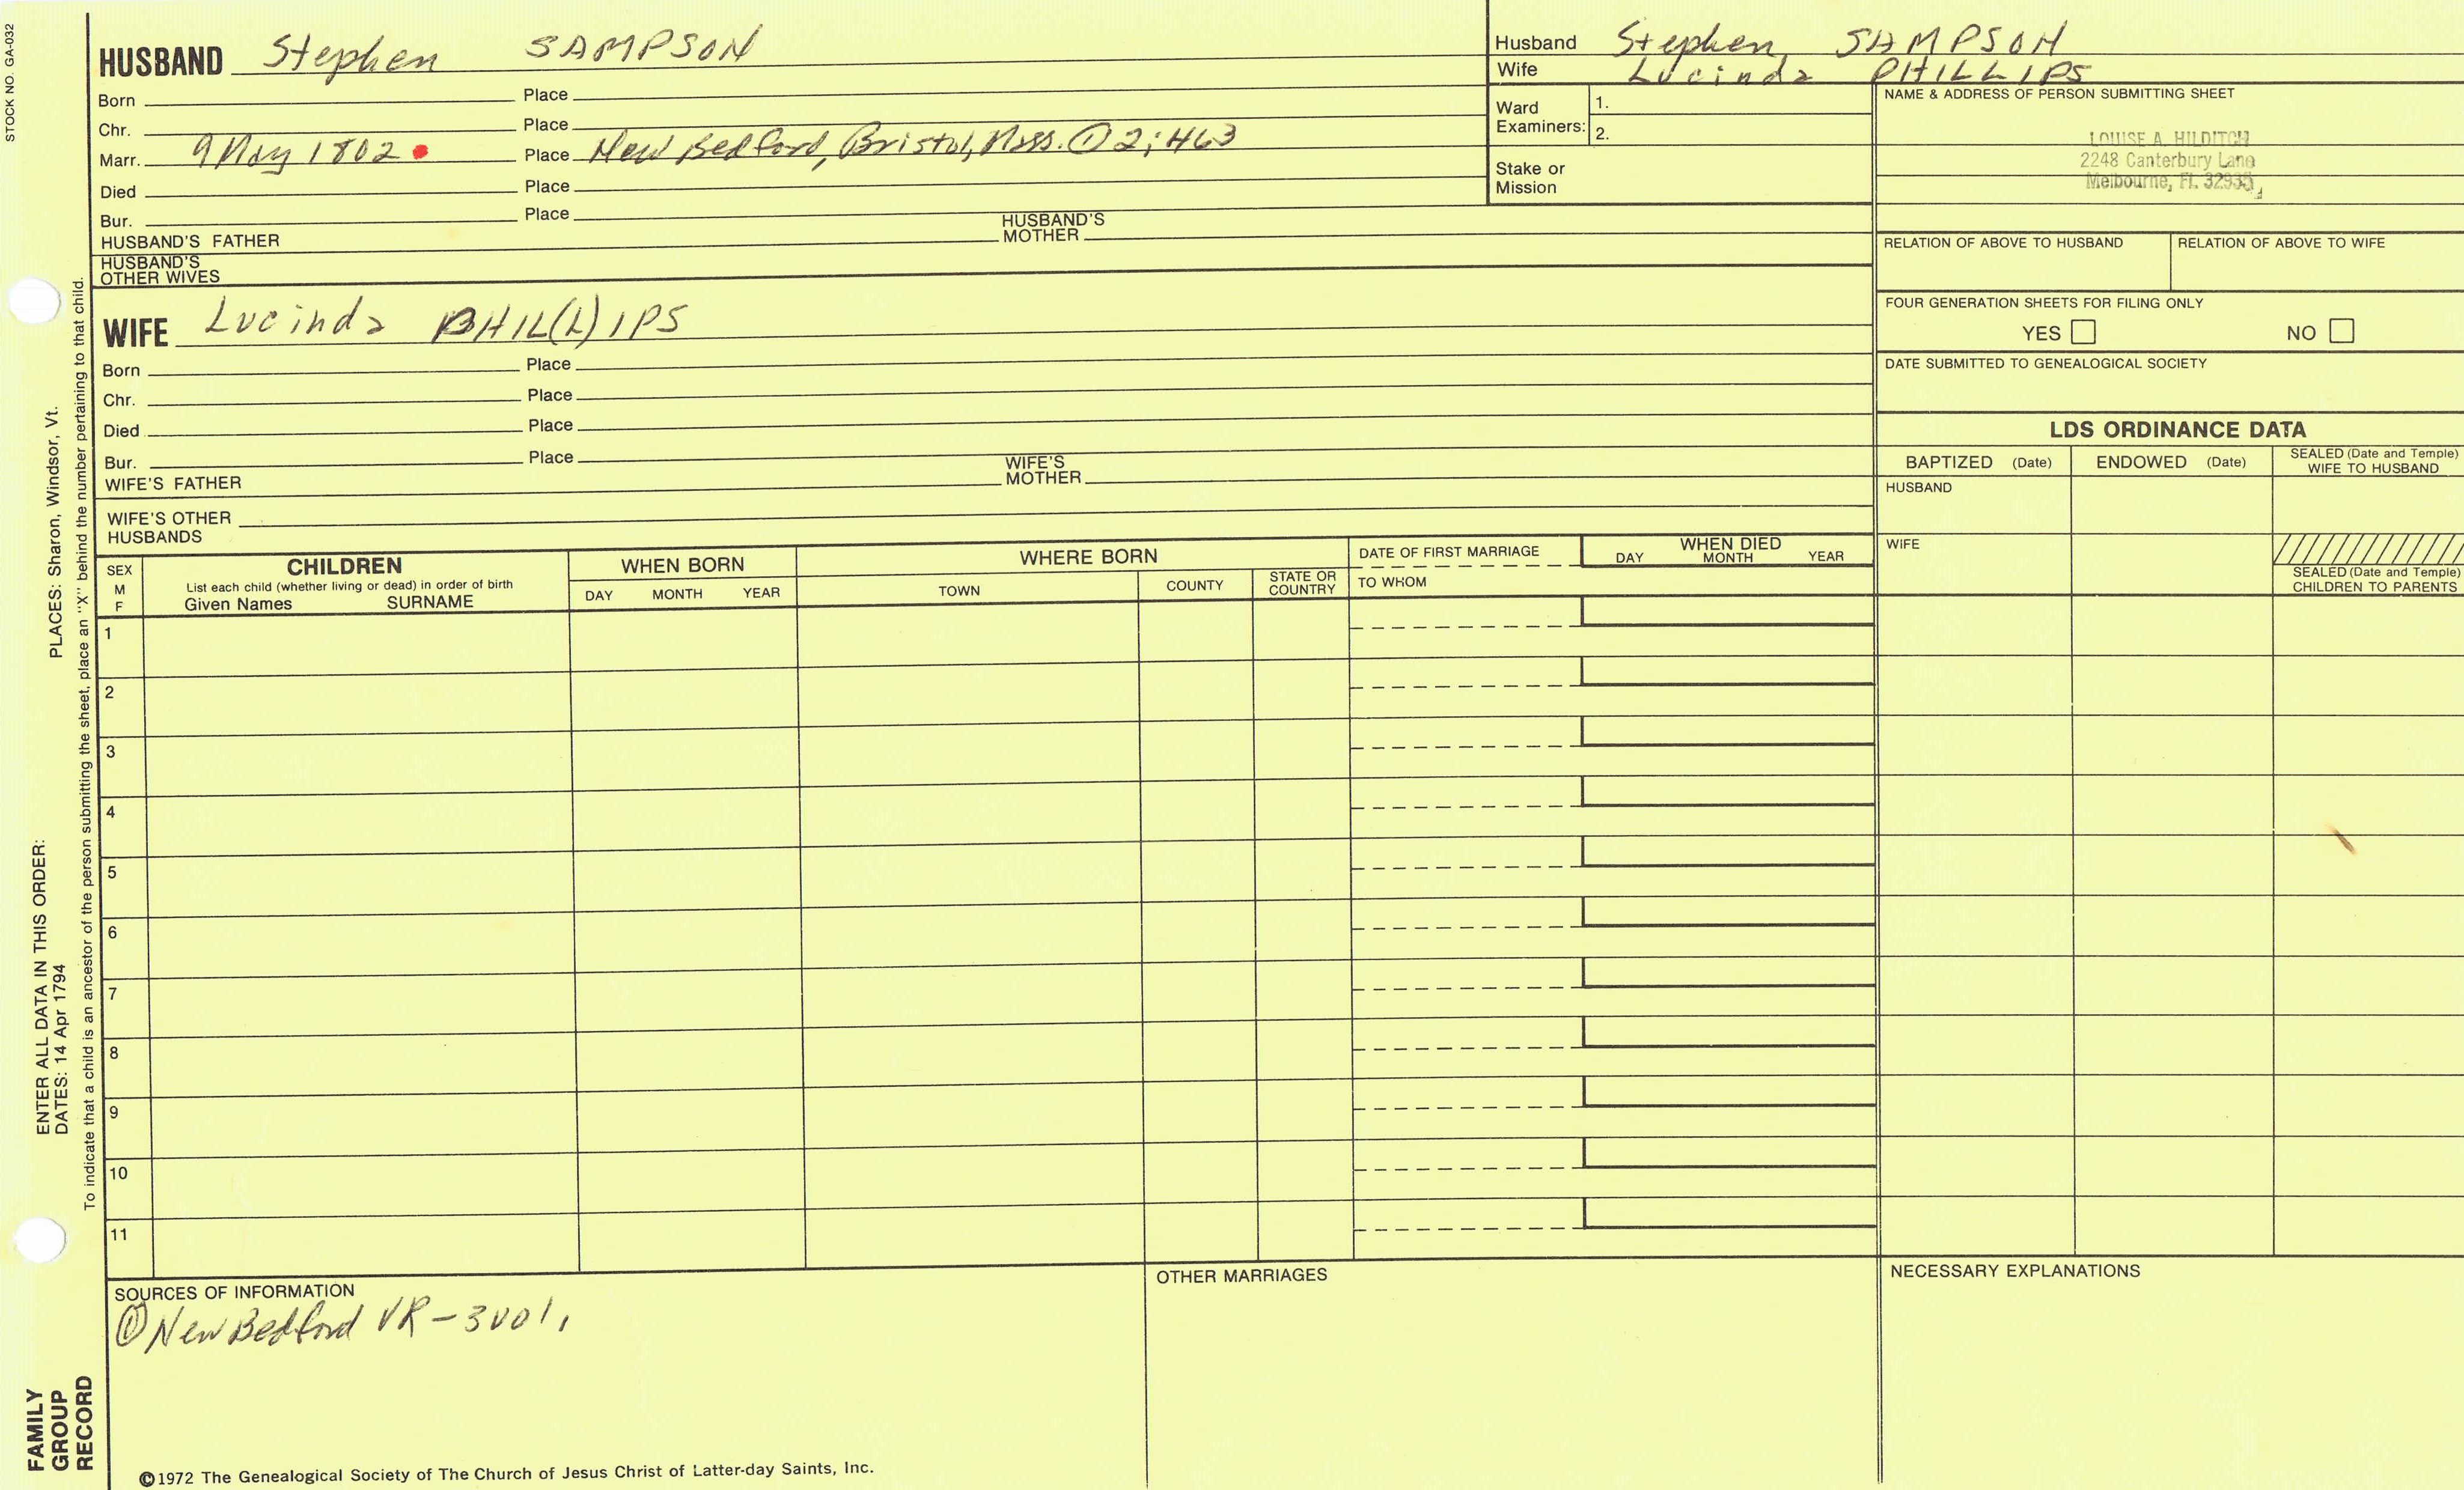 STOCK NO. GA-032
HUSBAND Stephen SAMPSON
Born Place
Chr. Place
Marr. 9 May 1802 Place New Bedford, Bristol, Mass. ① 2; 463
Died Place
Bur. Place
HUSBAND'S FATHER HUSBAND'S MOTHER
HUSBAND'S
OTHER WIVES
Husband Stephen SAMPSON
Wife Lucinda PHILLIPS
Ward
Examiners:
1.
2.
Stake or
Mission
NAME & ADDRESS OF PERSON SUBMITTING SHEET
LOUISE A. HILDITCH
2248 Canterbury Lane
Melbourne, Fl. 32935
RELATION OF ABOVE TO HUSBAND RELATION OF ABOVE TO WIFE
FOUR GENERATION SHEETS FOR FILING ONLY
YES NO
DATE SUBMITTED TO GENEALOGICAL SOCIETY
WIFE Lucinda PHIL(L)IPS
Born Place
Chr. Place
Died Place
Bur. Place
WIFE'S FATHER WIFE'S MOTHER
WIFE'S OTHER
HUSBANDS
LDS ORDINANCE DATA
BAPTIZED (Date) ENDOWED (Date) SEALED (Date and Temple) WIFE TO HUSBAND
HUSBAND
WIFE
SEALED (Date and Temple)
CHILDREN TO PARENTS
SEX
M
F
CHILDREN
List each child (whether living or dead) in order of birth
Given Names SURNAME
WHEN BORN
DAY MONTH YEAR
WHERE BORN
TOWN COUNTY STATE OR COUNTRY
DATE OF FIRST MARRIAGE
TO WHOM
WHEN DIED
DAY MONTH YEAR
1
2
3
4
5
6
7
8
9
10
11
SOURCES OF INFORMATION
① New Bedford VR - 3 vol.
OTHER MARRIAGES
NECESSARY EXPLANATIONS
©1972 The Genealogical Society of The Church of Jesus Christ of Latter-day Saints, Inc.
FAMILY
GROUP
RECORD
ENTER ALL DATA IN THIS ORDER:
DATES: 14 Apr 1794
PLACES: Sharon, Windsor, Vt.
To indicate that a child is an ancestor of the person submitting the sheet, place an "X" behind the number pertaining to that child.